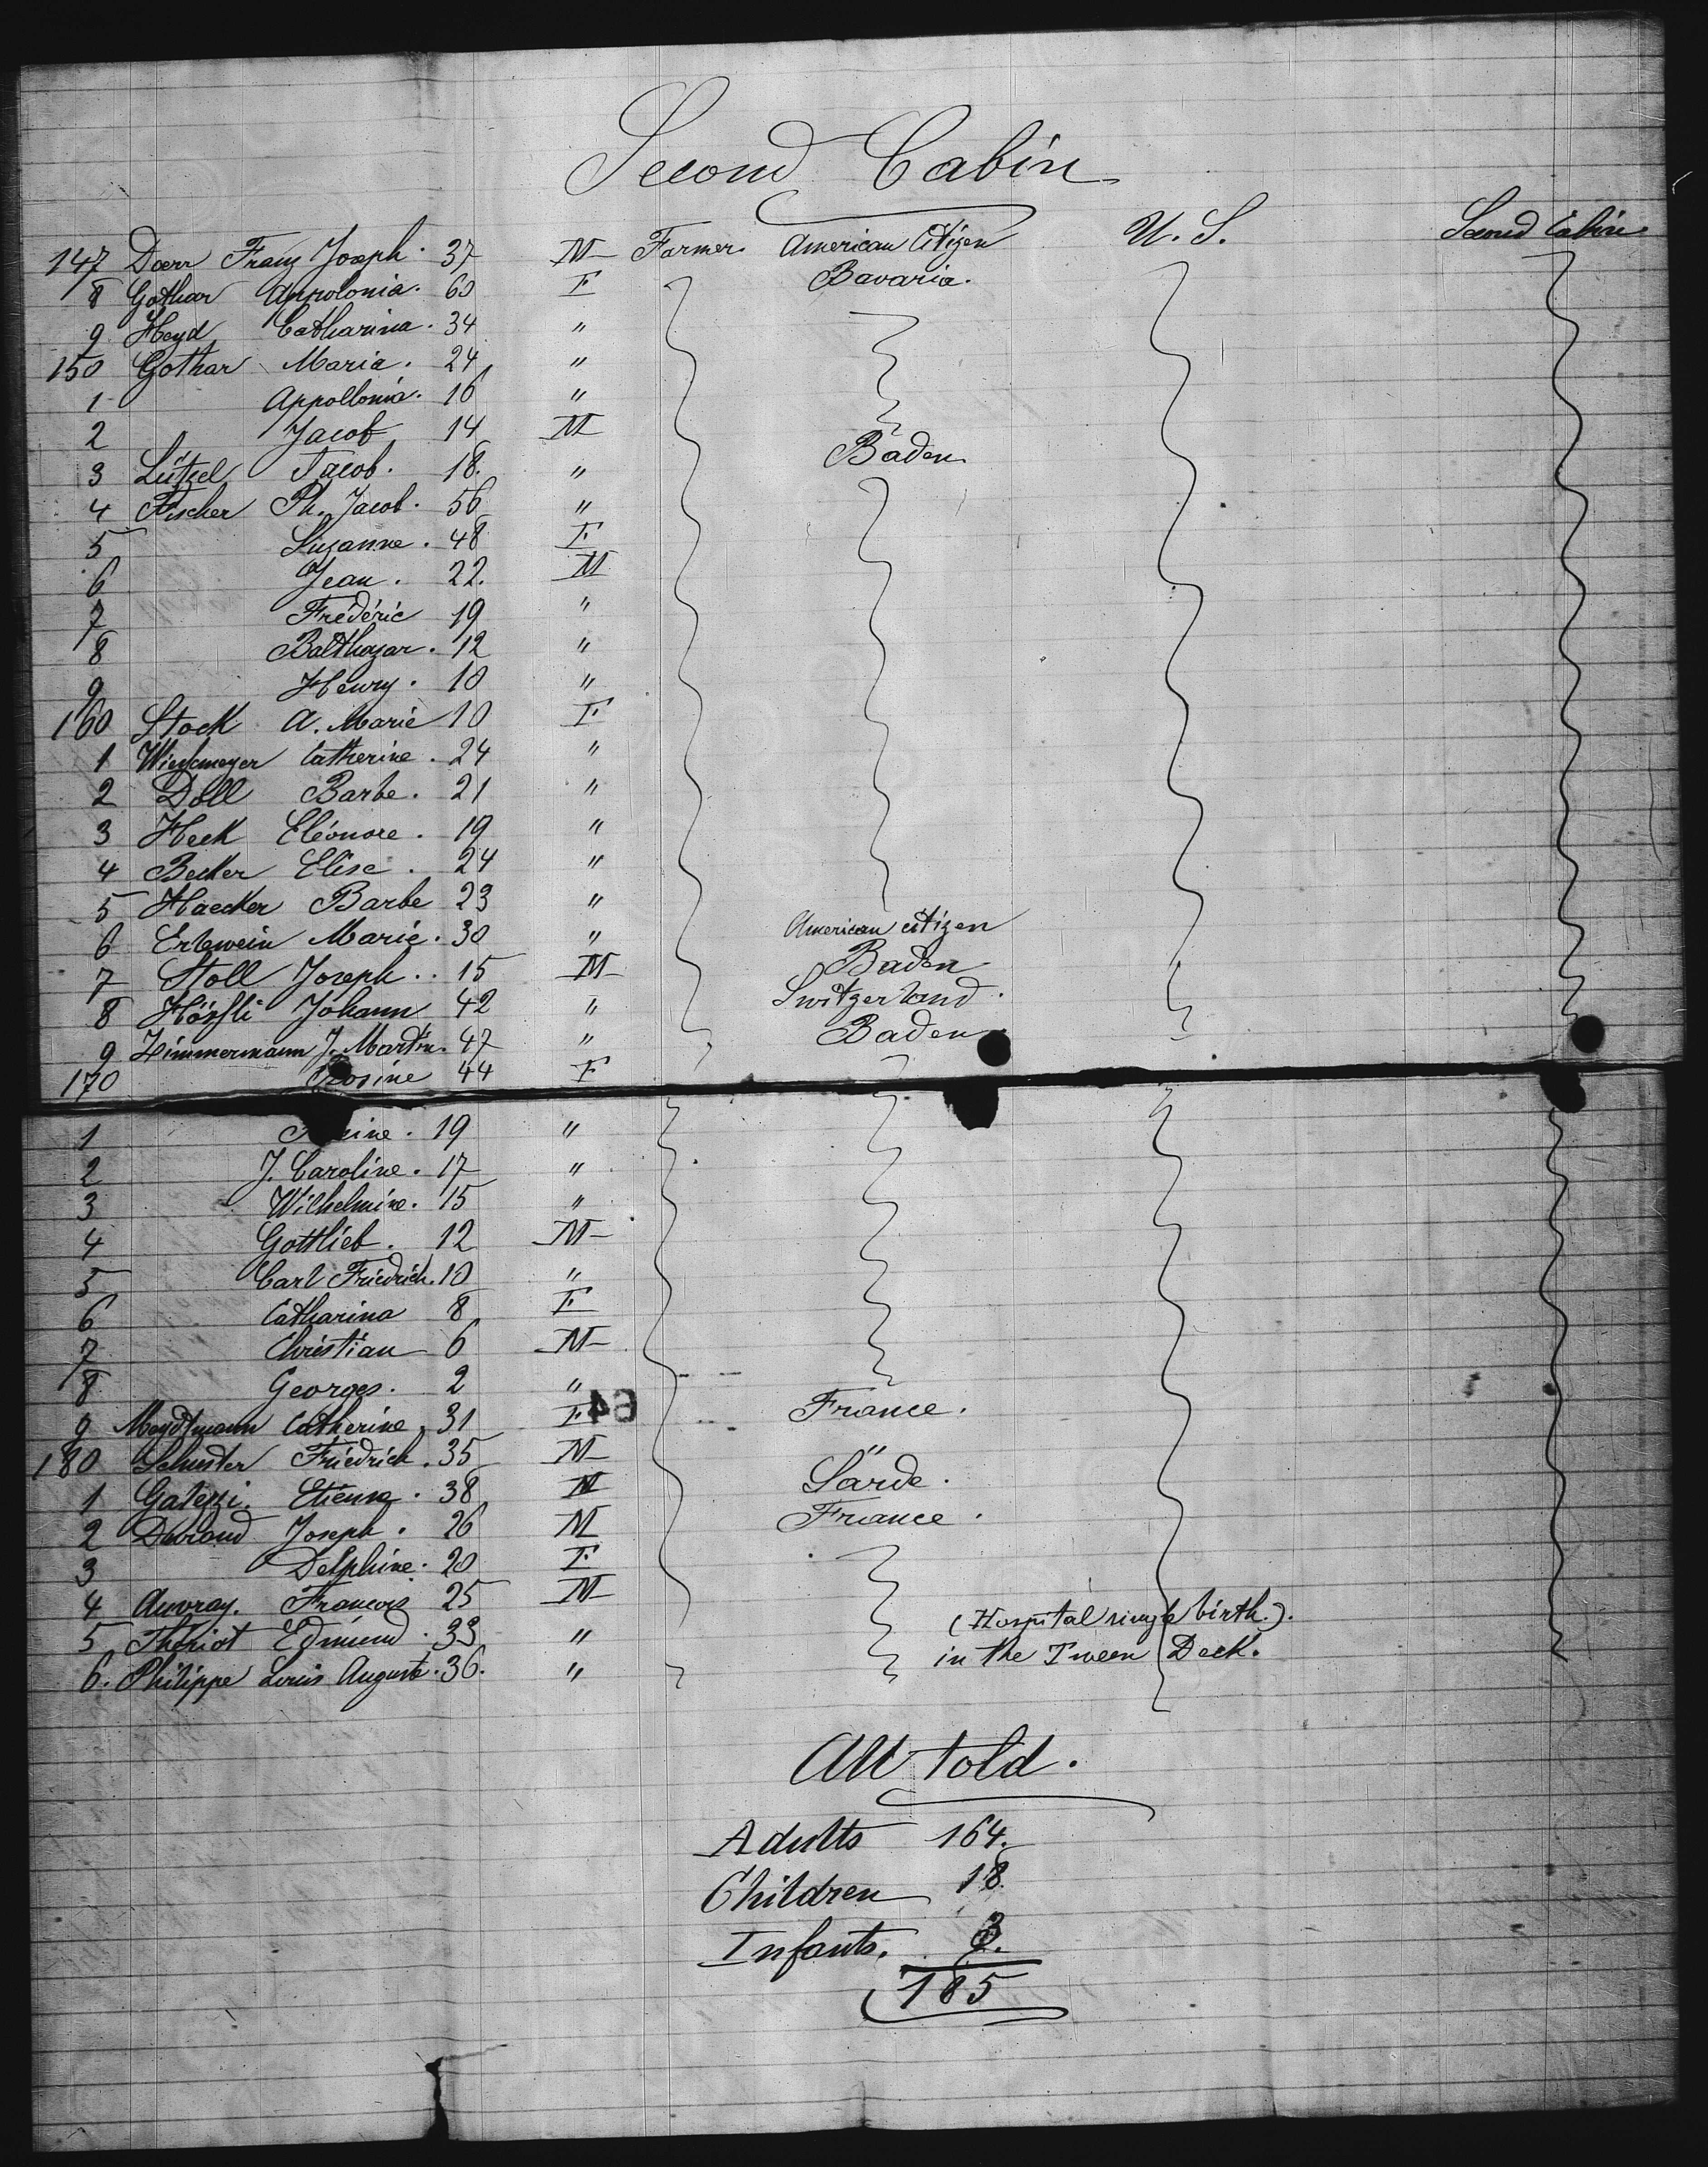 Second Cabin
147 Doerr Franz Joseph. 37 M Farmer. American Citizen U. S. Second Cabin
8 Gothar Appolonia. 60 F Bavaria.
9 Heyd Catharina. 34 "
150 Gothar Maria. 24 "
1 Appollonia. 16 "
2 Jacob 14 M
3 Lützel Jacob. 18. " Baden
4 Fischer Ph. Jacob. 56 "
5 Suzanne. 48 F
6 Jean. 22. M
7 Frédéric 19 "
8 Balthazar. 12 "
9 Henry. 10 "
160 Stock A. Marie 10 F
1 Catherine. 24 "
2 Doll Barbe. 21 "
3 Heck Eléonore. 19 "
4 Becker Elise. 24 "
5 Haecker Barbe 23 "
6 Erbwein Marie. 30 " American citizen
7 Stoll Joseph.. 15 M Baden
8 Johann 42 " Switzerland.
9 Zimmermann J. Martin. 47 " Baden
170 Rosine 44 F
1 19 "
2 J. Caroline. 17 "
3 Wilhelmine. 15 "
4 Gottlieb. 12 M
5 Carl Friedrich. 10 "
6 Catharina 8 F
7 Christian 6 M
8 Georges. 2 "
9 Catherine. 31 F 64 France.
180 Schuster Friedrich. 35 M "
1 Etienne. 38 M Sarde.
2 Durand Joseph. 26 M France.
3 Delphine. 20 F
4 Auvray. Francois 25 M
5 Thériot Edmund. 33 " (Hospital single birth.).
6. Philippe Louis Auguste. 36. " in the Tween Deck.
All told.
Adults 164.
Children 18.
Infants. 3.
185